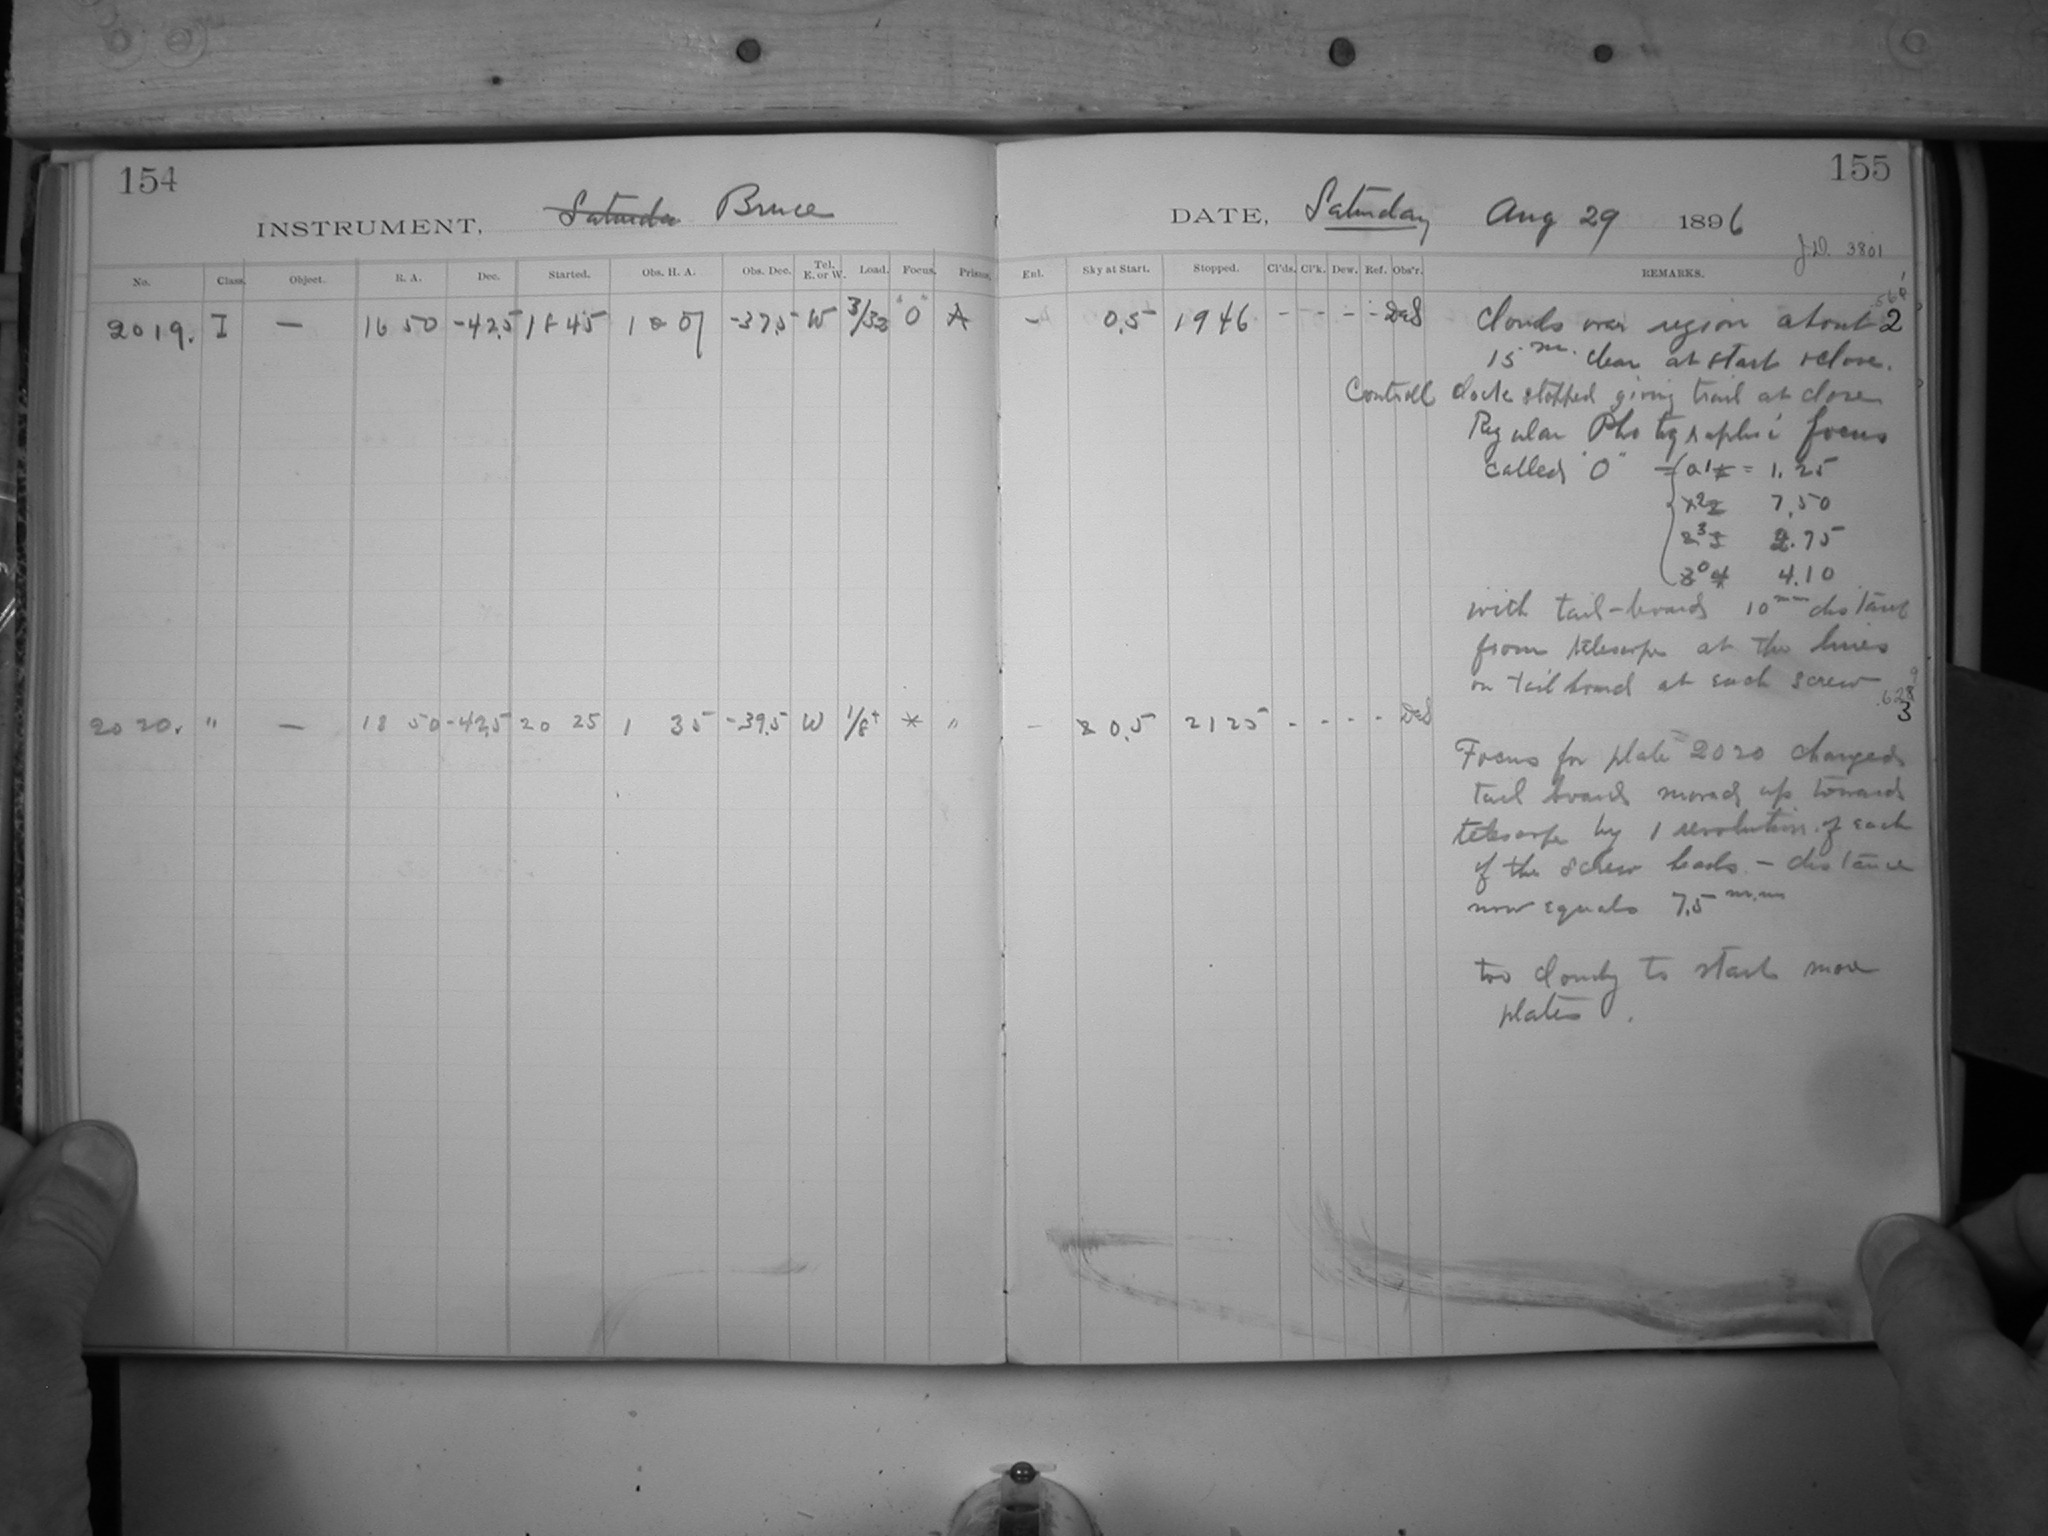 154
155
INSTRUMENT, Saturda Bruce
DATE, Saturday Aug 29 1896
J.D. 3801
No. Class. Object. R. A. Dec. Started. Obs. H. A. Obs. Dec. Tel. E. or W. Load. Focus. Prisms. Ent. Sky at Start. Stopped. Cl'ds. Cl'k. Dew. Ref. Obs'r. REMARKS.
2019. I — 16 50 -42.5 18 45 1 07 -37.5 W 3/32 "0" – 0.5 19 46 - - - - Clouds over region about 2
15 m. clear at start & close.
Controll clock stopped giving trail at close
Regular Photographic focus
called "0" 1 = 1.25
2 7.50
3 2.75
0 4.10
with tail-board 10 mm distant
from telescope at the lines
on tail board at each screw
2020. " — 18 50 -42.5 20 25 1 35 -39.5 W 1/8+ * " – 0.5 21 25 - - - - 3
Focus for plate 2020 changed
tail board moved up towards
telescope by 1 revolution of each
of the screw heads – distance
now equals 7.5 m.m
too cloudy to start more
plates.